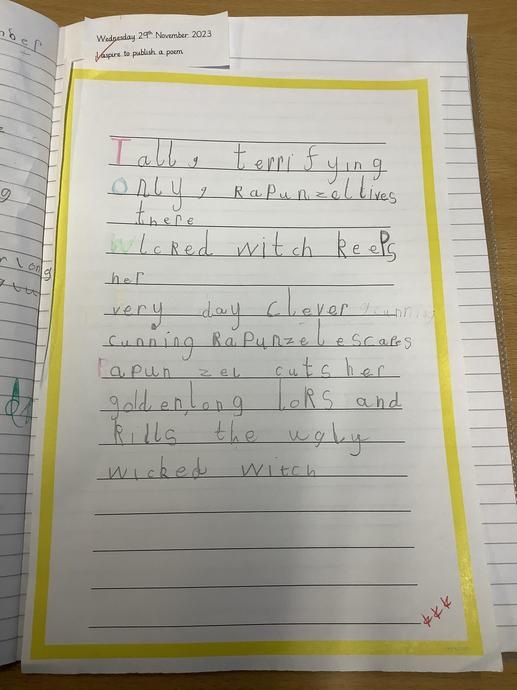 Wednesday 29th November 2023
I aspire to publish a poem
Tall, terrifying
Only, Rapunzel lives
there
Wicked witch keeps
her
very day Clever cunning
cunning Rapunzel escapes
Rapunzel cuts her
golden, long loRs and
kills the ugly
wicked witch